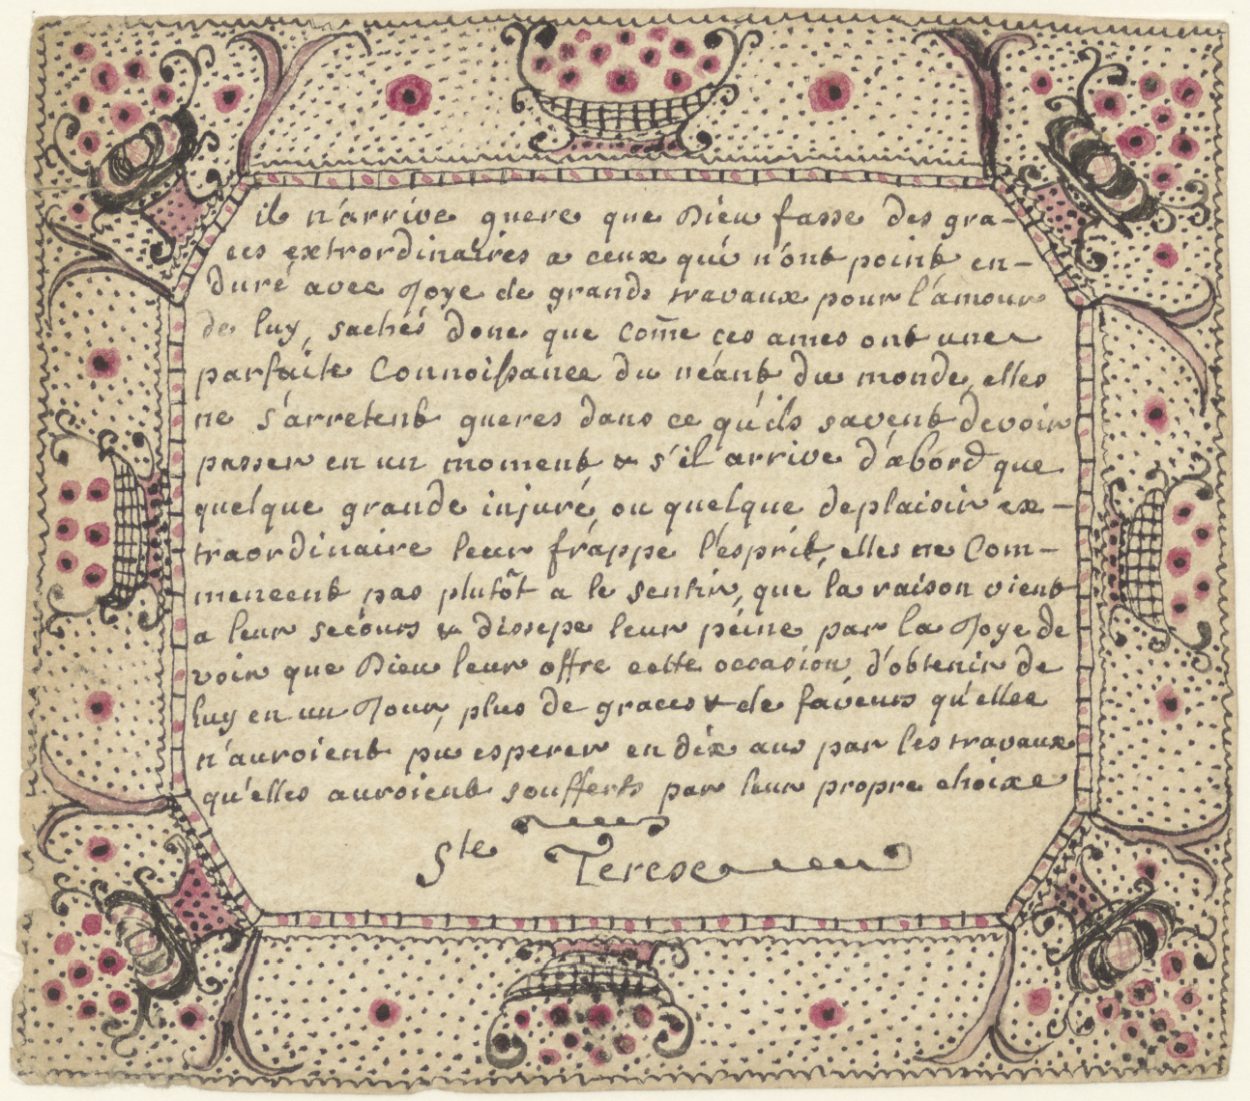 il n'arrive guere que Dieu fasse des gra-
ces extrordinaires a ceux qui n'ont point en-
duré avec Joye de grands travaux pour l'amour
de luy, sachés donc que com̃e ces ames ont une
parfaite Connoissance du néant du monde, elles
ne s'arretent gueres dans ce qu'ils savent devoir
passer en un moment & s'il arrive d'abord que
quelque grande injure, ou quelque deplaisir ex-
traordinaire leur frappe l'esprit, elles ne Com-
mencent pas plutôt a le sentir, que la raison vient
a leur secours & dissepe leur peine par la Joye de
voir que Dieu leur offre cette occasion, d'obtenir de
luy en un Jour, plus de graces & de faveurs qu'elles
n'auroient pu esperer en dix ans par les travaux
qu'elles auroient soufferts par leur propre choixe
Ste Terese